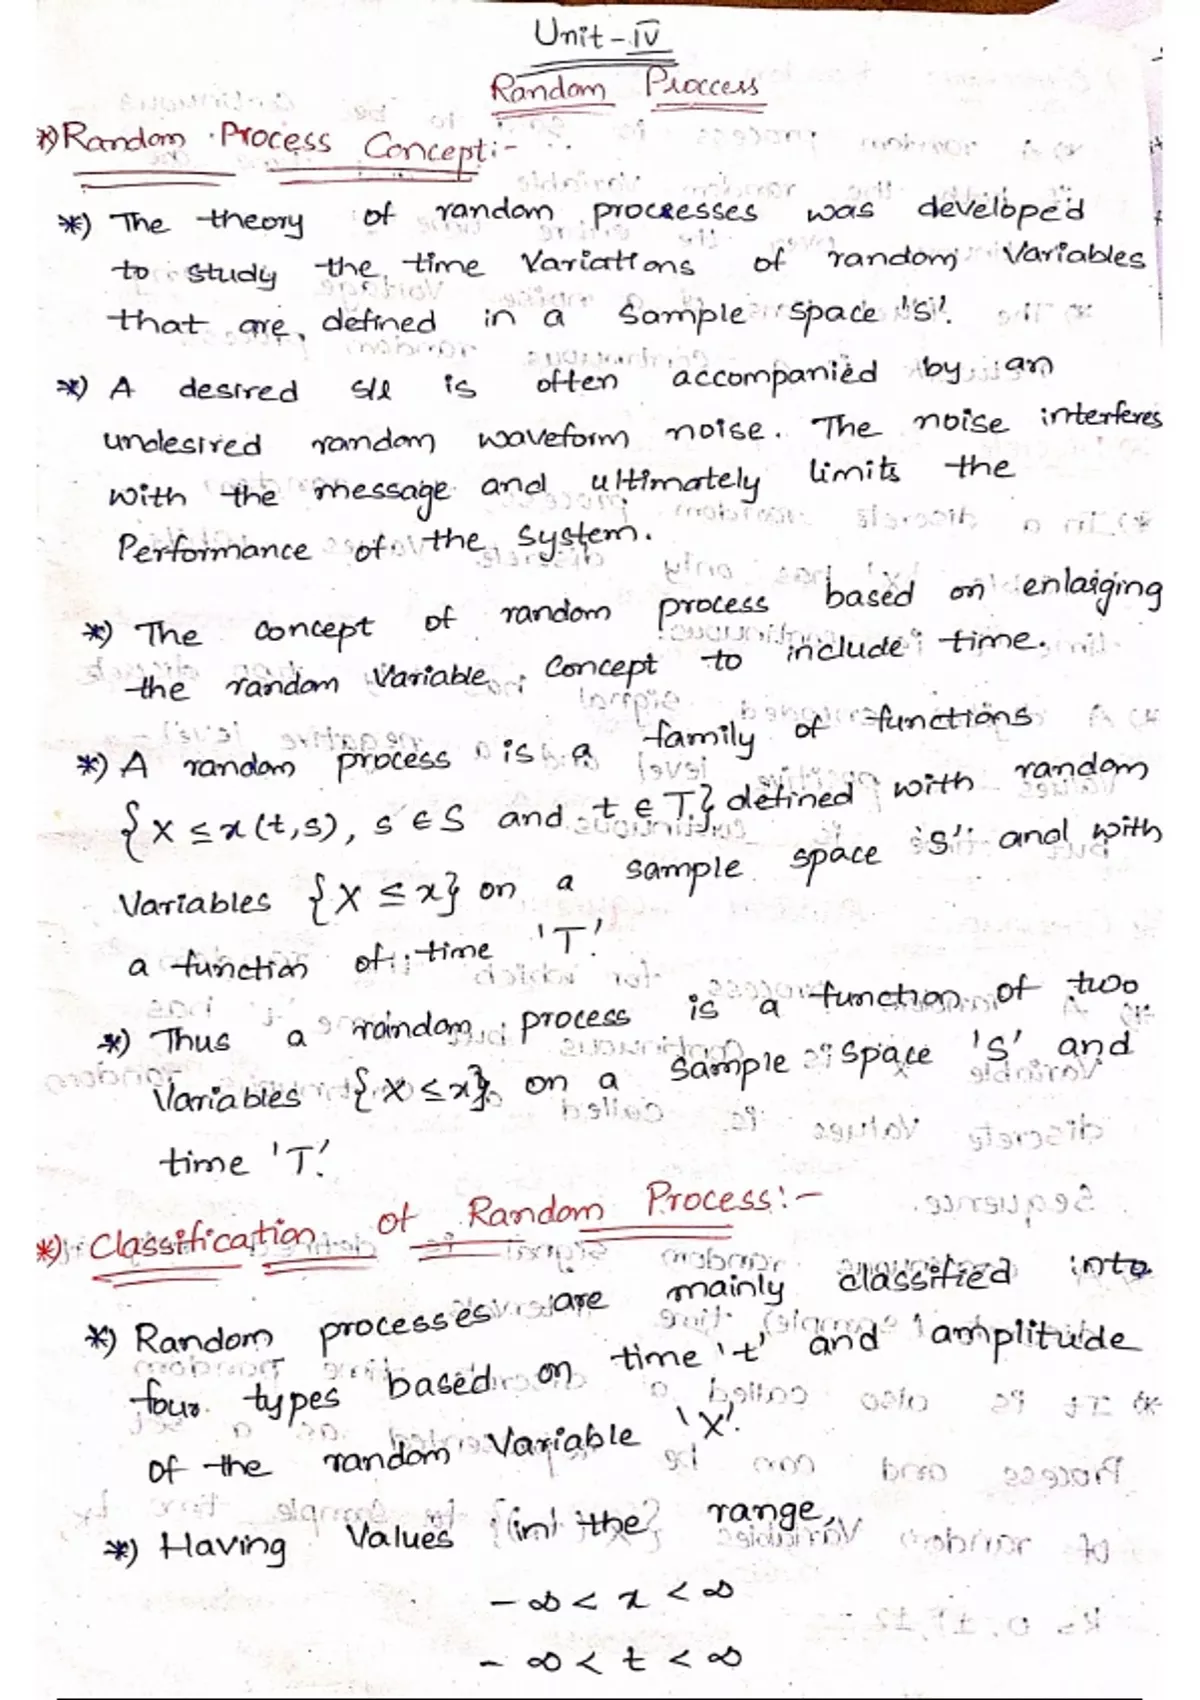 Unit-IV
Random Process
*) Random Process Concept:-
*) The theory of random processes was developed
to study the time Variations of random Variables
that are defined in a Sample space 'S'.
*) A desired s/l is often accompanied by an
undesired random waveform noise. The noise interferes
with the message and ultimately limits the
Performance of the system.
*) The concept of random process based on enlarging
the random Variable Concept to include time.
*) A random process is a family of functions
{X ≤ x(t,s), s ∈ S and t ∈ T} defined with random
Variables {X ≤ x} on a sample space 'S' and with
a function of time 'T'.
*) Thus a random process is a function of two
Variables {X ≤ x} on a sample space 'S' and
time 'T'.
*) Classification of Random Process:-
*) Random processes are mainly classified into
four types based on time 't' and amplitude
of the random Variable 'X'.
*) Having Values in the range,
-∞ < x < ∞
-∞ < t < ∞